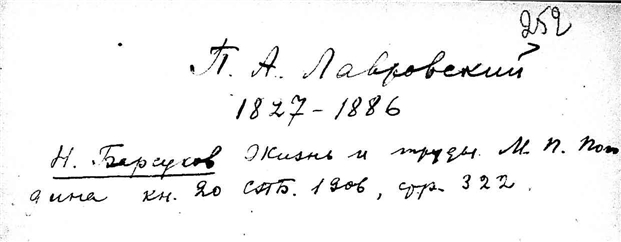 252
П. А. Лавровский
1827-1886
Н. Барсуков Жизнь и труды М. П. Пого
дина кн. 20 СПБ. 1906, стр. 322.